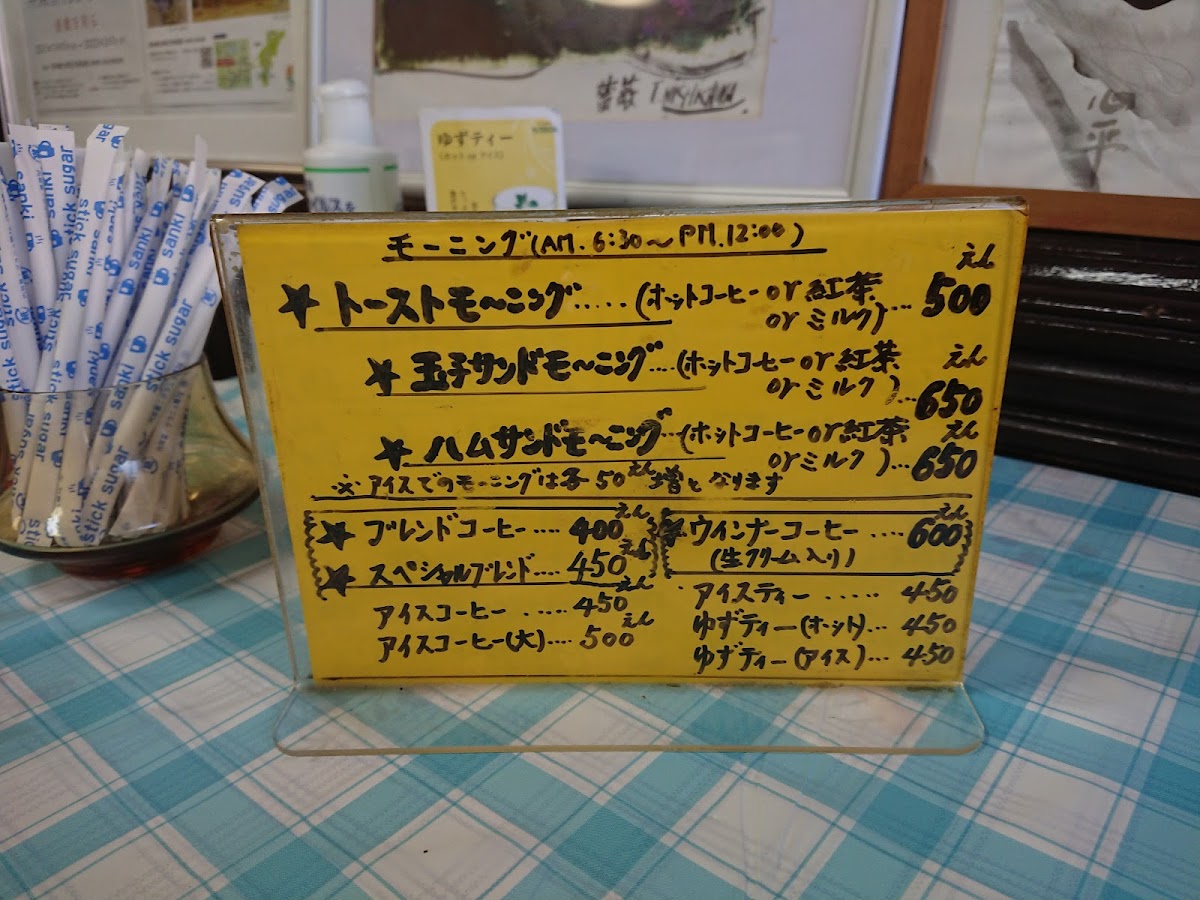 ゆずティー
(ホット or アイス)
心平
stick sugar
sanki
モーニング(AM.6:30〜PM.12:00)
★トーストモ〜ニング.....(ホットコーヒーor紅茶orミルク)...500えん
★玉子サンドモ〜ニング....(ホットコーヒーor紅茶orミルク)...650えん
★ハムサンドモ〜ニング...(ホットコーヒーor紅茶orミルク)...650えん
※アイスでのモーニングは 50えん増となります
★ブレンドコーヒー....400えん
★スペシャルブレンド....450えん
アイスコーヒー......450えん
アイスコーヒー(大)....500えん
★ウインナーコーヒー....600えん
(生クリーム入り)
アイスティー.....450
ゆずティー(ホット)...450
ゆずティー(アイス)...450